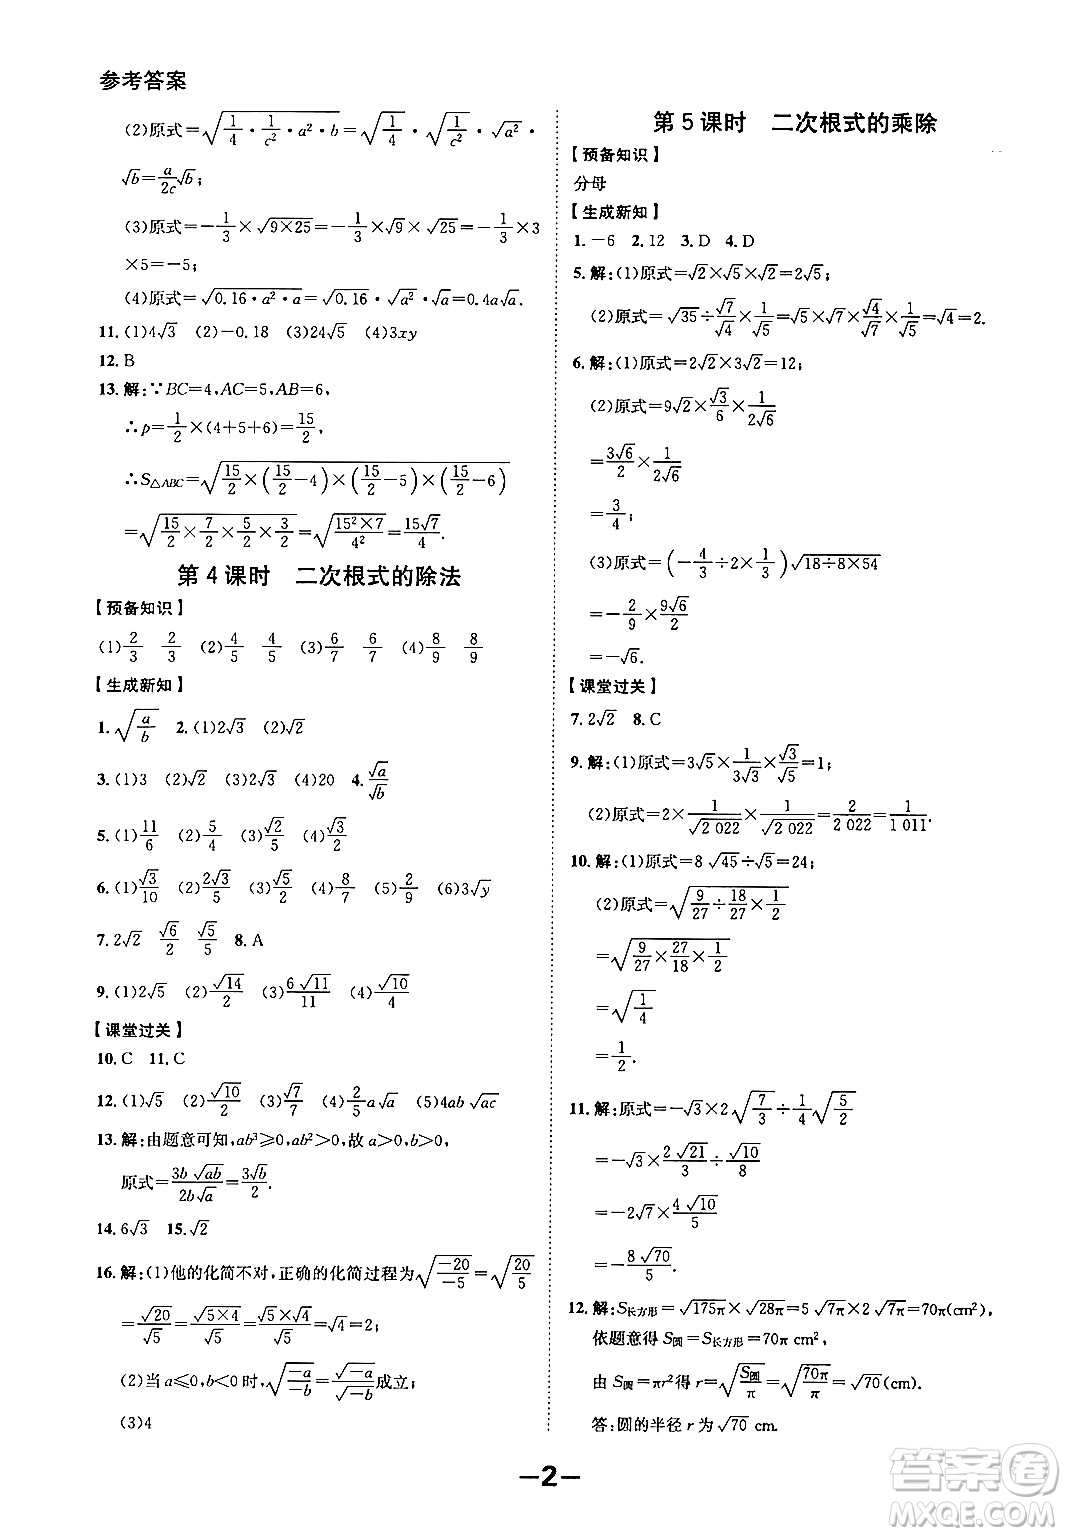 参考答案
(2)原式=√(1/4·1/c²·a²·b)=√(1/4)·√(1/c²)·√a²·
√b=a/2c√b;
(3)原式=-1/3×√(9×25)=-1/3×√9×√25=-1/3×3
×5=-5;
(4)原式=√(0.16·a²·a)=√0.16·√a²·√a=0.4a√a.
11.(1)4√3 (2)-0.18 (3)24√5 (4)3xy
12.B
13.解:∵BC=4,AC=5,AB=6,
∴p=1/2×(4+5+6)=15/2,
∴S△ABC=√(15/2×(15/2-4)×(15/2-5)×(15/2-6))
=√(15/2×7/2×5/2×3/2)=√(15²×7/4²)=15√7/4.
第4课时 二次根式的除法
【预备知识】
(1)2/3 2/3 (2)4/5 4/5 (3)6/7 6/7 (4)8/9 8/9
【生成新知】
1.√(a/b) 2.(1)2√3 (2)√2
3.(1)3 (2)√2 (3)2√5 (4)20 4.√a/√b
5.(1)11/6 (2)5/4 (3)√2/5 (4)√3/2
6.(1)√3/10 (2)2√3/5 (3)√5/2 (4)8/7 (5)2/9 (6)3√y
7.2√2 √6/2 √5/5 8.A
9.(1)2√5 (2)√14/2 (3)6√11/11 (4)√10/4
【课堂过关】
10.C 11.C
12.(1)√5 (2)√10/2 (3)√7/7 (4)2/5a√a (5)4ab√ac
13.解:由题意可知,ab³≥0,ab²>0,故a>0,b>0,
原式=3b√ab/2b√a=3√b/2.
14.6√3 15.√2
16.解:(1)他的化简不对,正确的化简过程为√(-20/-5)=√(20/5)
=√20/√5=√(5×4)/√5=√5×√4/√5=√4=2;
(2)当a≤0,b<0时,√(-a/-b)=√-a/√-b成立;
(3)4
第5课时 二次根式的乘除
【预备知识】
分母
【生成新知】
1.-6 2.12 3.D 4.D
5.解:(1)原式=√2×√5×√2=2√5;
(2)原式=√35÷√7/√4×1/√5=√5×√7×√4/√7×1/√5=√4=2.
6.解:(1)原式=2√2×3√2=12;
(2)原式=9√2×√3/6×1/2√6
=3√6/2×1/2√6
=3/4;
(3)原式=(-4/3÷2×1/3)√(18÷8×54)
=-2/9×9√6/2
=-√6.
【课堂过关】
7.2√2 8.C
9.解:(1)原式=3√5×1/3√3×√3/√5=1;
(2)原式=2×1/√2 022×1/√2 022=2/2 022=1/1 011.
10.解:(1)原式=8√45÷√5=24;
(2)原式=√(9/27÷18/27×1/2)
=√(9/27×27/18×1/2)
=√(1/4)
=1/2.
11.解:原式=-√3×2√(7/3)÷1/4√(5/2)
=-√3×2√21/3÷√10/8
=-2√7×4√10/5
=-8√70/5.
12.解:S长方形=√175π×√28π=5√7π×2√7π=70π(cm²),
依题意得S圆=S长方形=70π cm²,
由S圆=πr²得r=√(S圆/π)=√(70π/π)=√70(cm).
答:圆的半径r为√70 cm.
-2-
答案圈
MXQE.COM